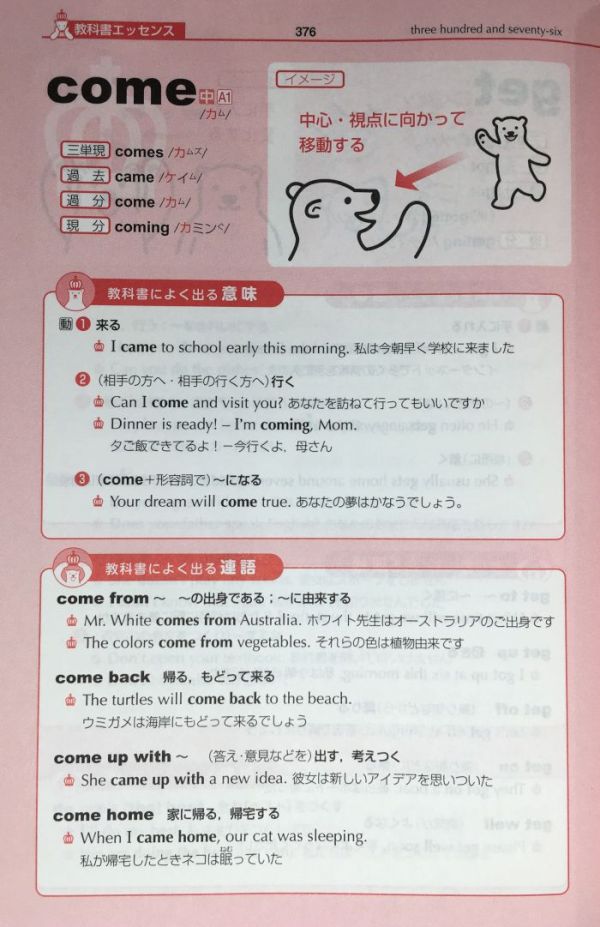 教科書エッセンス
376
three hundred and seventy-six
come 中 A1
/カム/
三単現 comes /カムズ/
過 去 came /ケイム/
過 分 come /カム/
現 分 coming /カミング/
イメージ
中心・視点に向かって
移動する
教科書によく出る意味
動 1 来る
I came to school early this morning. 私は今朝早く学校に来ました
2 (相手の方へ・相手の行く方へ)行く
Can I come and visit you? あなたを訪ねて行ってもいいですか
Dinner is ready! – I'm coming, Mom.
夕ご飯できてるよ！－今行くよ，母さん
3 (come＋形容詞で)〜になる
Your dream will come true. あなたの夢はかなうでしょう。
教科書によく出る連語
come from 〜 〜の出身である；〜に由来する
Mr. White comes from Australia. ホワイト先生はオーストラリアのご出身です
The colors come from vegetables. それらの色は植物由来です
come back 帰る，もどって来る
The turtles will come back to the beach.
ウミガメは海岸にもどって来るでしょう
come up with 〜 (答え・意見などを)出す，考えつく
She came up with a new idea. 彼女は新しいアイデアを思いついた
come home 家に帰る，帰宅する
When I came home, our cat was sleeping.
私が帰宅したときネコは眠っていた